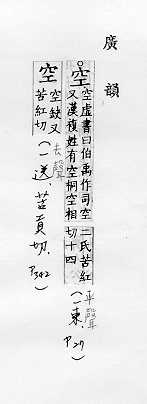 廣韻
空空虛書曰伯禹作司空
又漢複姓有空桐空相
二氏苦紅
切十四
(一東，P27)
平聲
空空缺又
苦紅切
去聲
(一送，苦貢切，P342)